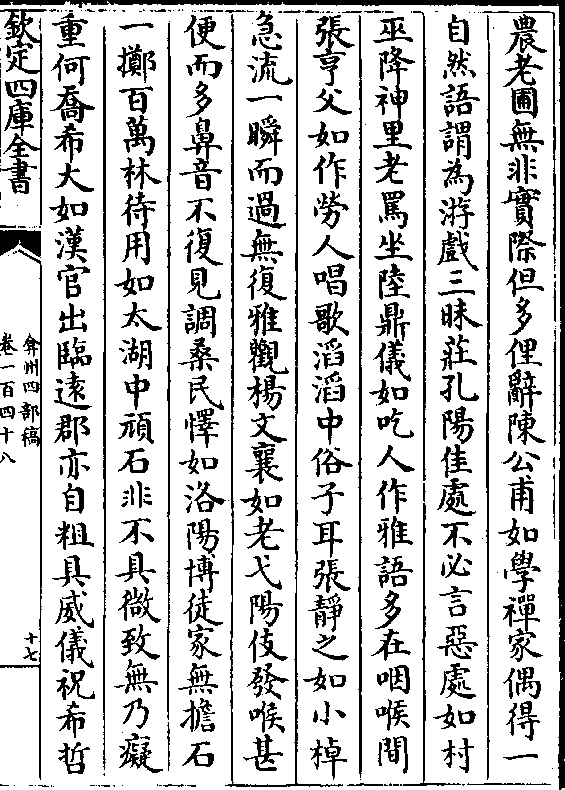 農老圃無非實際但多俚辭陳公甫如學禪家偶得一
自然語謂為游戲三昧莊孔陽佳處不必言惡處如村
巫降神里老罵坐陸鼎儀如吃人作雅語多在咽喉間
張亨父如作勞人唱歌滔滔中俗子耳張靜之如小棹
急流一瞬而過無復雅觀楊文襄如老弋陽伎發喉甚
便而多鼻音不復見調桑民懌如洛陽博徒家無擔石
一擲百萬林待用如太湖中頑石非不具微致無乃癡
重何喬希大如漢官出臨遠郡亦自粗具威儀祝希哲
欽定四庫全書
弇州四部稿
卷一百四十八
十七